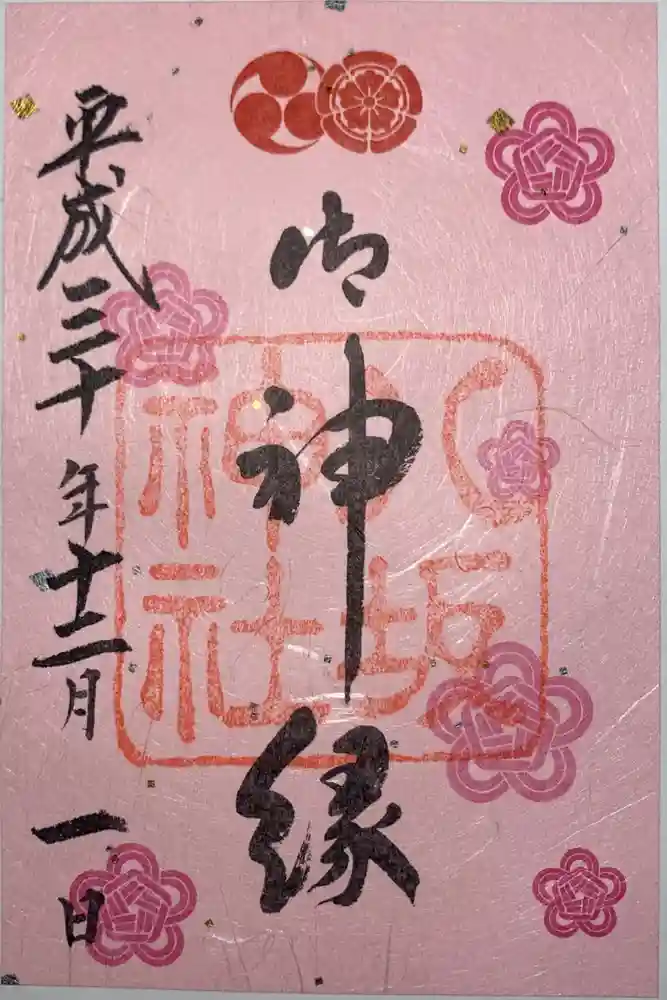 御神縁
八坂
神社
平成三十年十二月一日